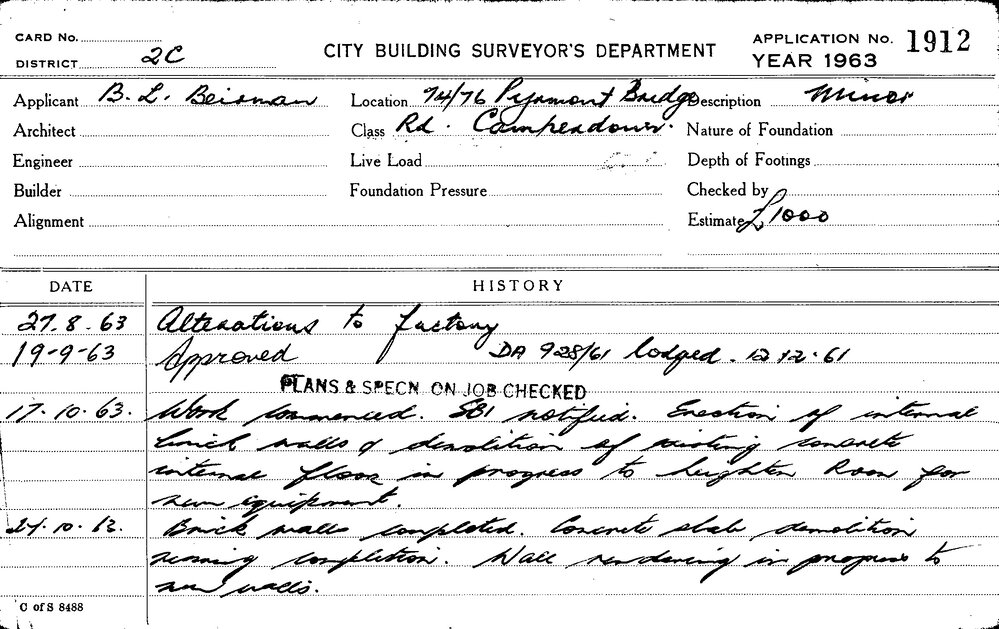 CARD No.
DISTRICT 2C
CITY BUILDING SURVEYOR'S DEPARTMENT
APPLICATION No. 1912
YEAR 1963
Applicant B. L. Beisman Location 74/76 Pyrmont Bridge Description Minor
Architect Class Rd. Camperdown. Nature of Foundation
Engineer Live Load Depth of Footings
Builder Foundation Pressure Checked by
Alignment Estimate £1000
DATE HISTORY
27.8.63 Alterations to factory
19-9-63 Approved DA 928/61 lodged. 12.12.61
PLANS & SPECN. ON JOB CHECKED
17.10.63. Work commenced. SBI notified. Erection of internal
brick walls & demolition of existing concrete
internal floor in progress to heighten Room for
new equipment.
24.10.63. Brick walls completed. Concrete slab demolition
nearing completion. Wall rendering in progress to
new walls.
C of S 8488